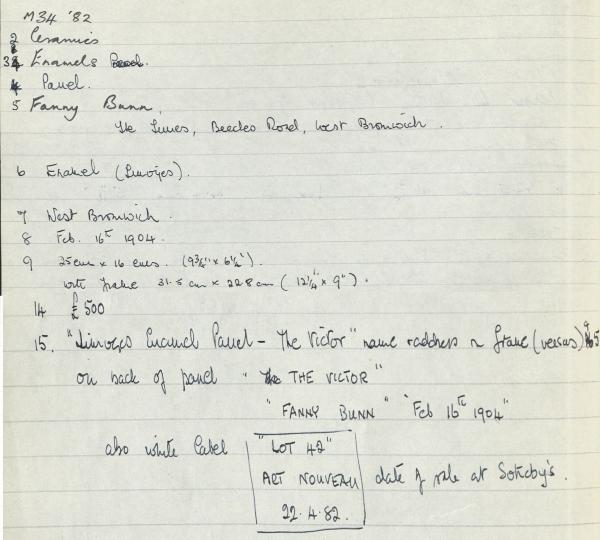 M34 '82
2 Ceramics
3 Enamels
4 Panel.
5 Fanny Bunn,
The Limes, Beeches Road, West Bromwich.
6 Enamel (Limoges).
7 West Bromwich.
8 Feb. 16th 1904.
9 25cm x 16 cms. (9 3/4" x 6 1/4").
with frame 31.5 cm x 22.8 cm (12 1/4" x 9").
14 £500
15. "Limoges Enamel Panel - The Victor" name & address on frame (verso)
on back of panel " THE VICTOR"
"FANNY BUNN" "Feb 16th 1904"
also white label "LOT 42"
ART NOUVEAU date of sale at Sotheby's.
22.4.82.